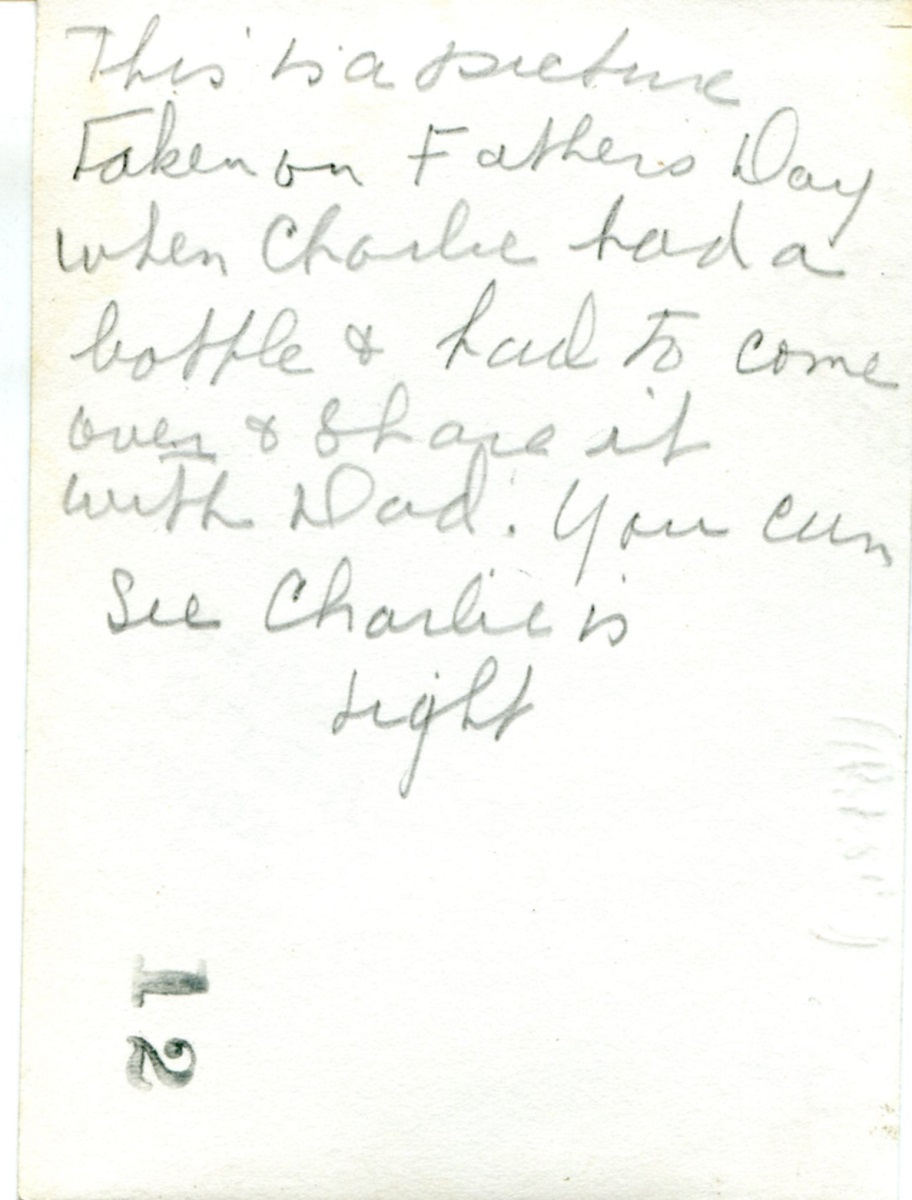 This is a picture
Taken on Fathers Day
when Charlie had a
bottle & had to come
over & share it
with Dad. You can
See Charlie is
tight
12